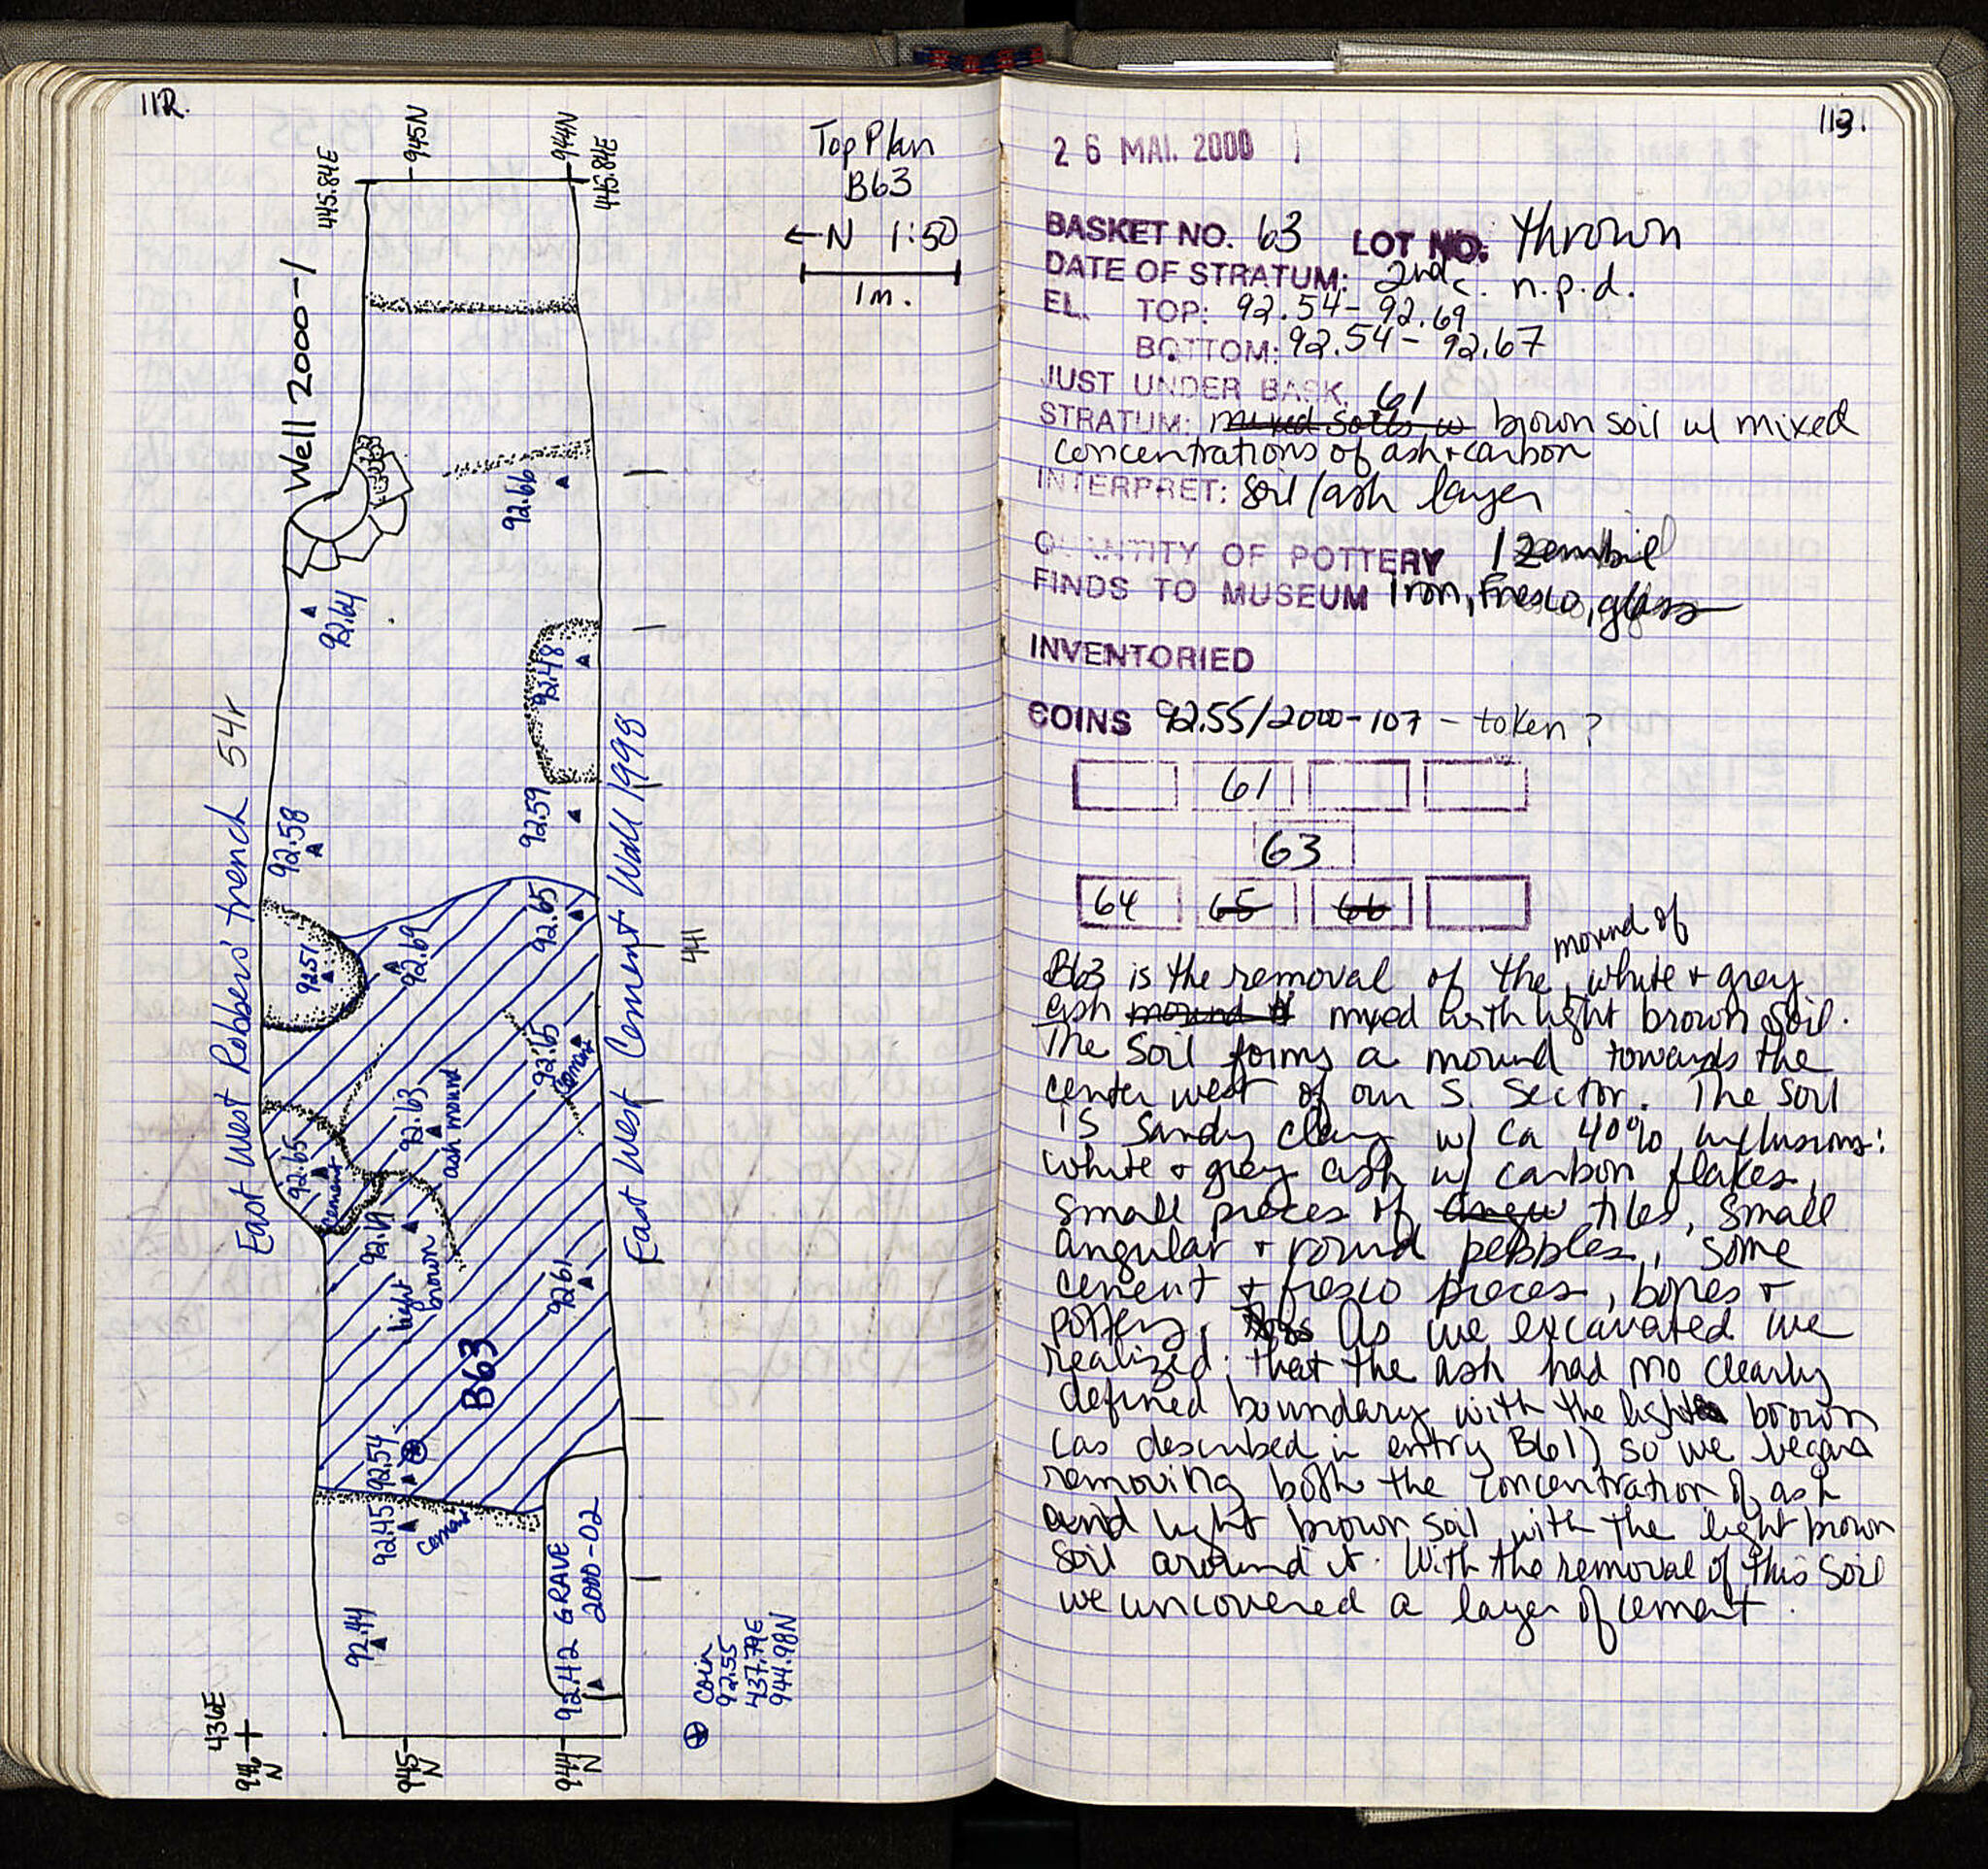 112.
Top Plan
B63
←N 1:50
1m.
445.84E
945N
944N
445.84E
Well 2000-1
92.66
92.61
92.48
92.59
92.58
East West Robbers' trench 54r
East West Cement Wall 1998
441
92.51
92.69
92.65
92.65
Cement
92.63
ash mound
92.65
Cement
92.61
light
brown
92.61
B63
92.54
92.45
Cement
92.44
92.42 GRAVE
2000-02
436E
946
N
945
N
944
N
Coin
92.55
437.79E
944.98N
113.
26 MAI. 2000
BASKET NO. 63 LOT NO. thrown
DATE OF STRATUM: 2nd c. n.p.d.
EL. TOP: 92.54 - 92.69
BOTTOM: 92.54 - 92.67
JUST UNDER BASK. 61
STRATUM: mixed soils w brown soil w/ mixed
concentrations of ash + carbon
INTERPRET: soil/ash layer
QUANTITY OF POTTERY 1 zembil
FINDS TO MUSEUM Iron, Fresco, glass
INVENTORIED
COINS 92.55/2000-107 - token?
61
63
64 65 66
mound of
B63 is the removal of the white + grey
ash mound of mixed with light brown soil.
The soil forms a mound towards the
center west of our S. Sector. The soil
is sandy clay w/ ca 40% inclusions:
white + grey ash w/ carbon flakes,
small pieces of tiles, small
angular + round pebbles, some
cement + fresco pieces, bones +
pottery. As we excavated we
realized that the ash had no clearly
defined boundary with the light brown
(as described in entry B61) so we began
removing both the concentration of ash
and light brown soil with the light brown
soil around it. With the removal of this soil
we uncovered a layer of cement.